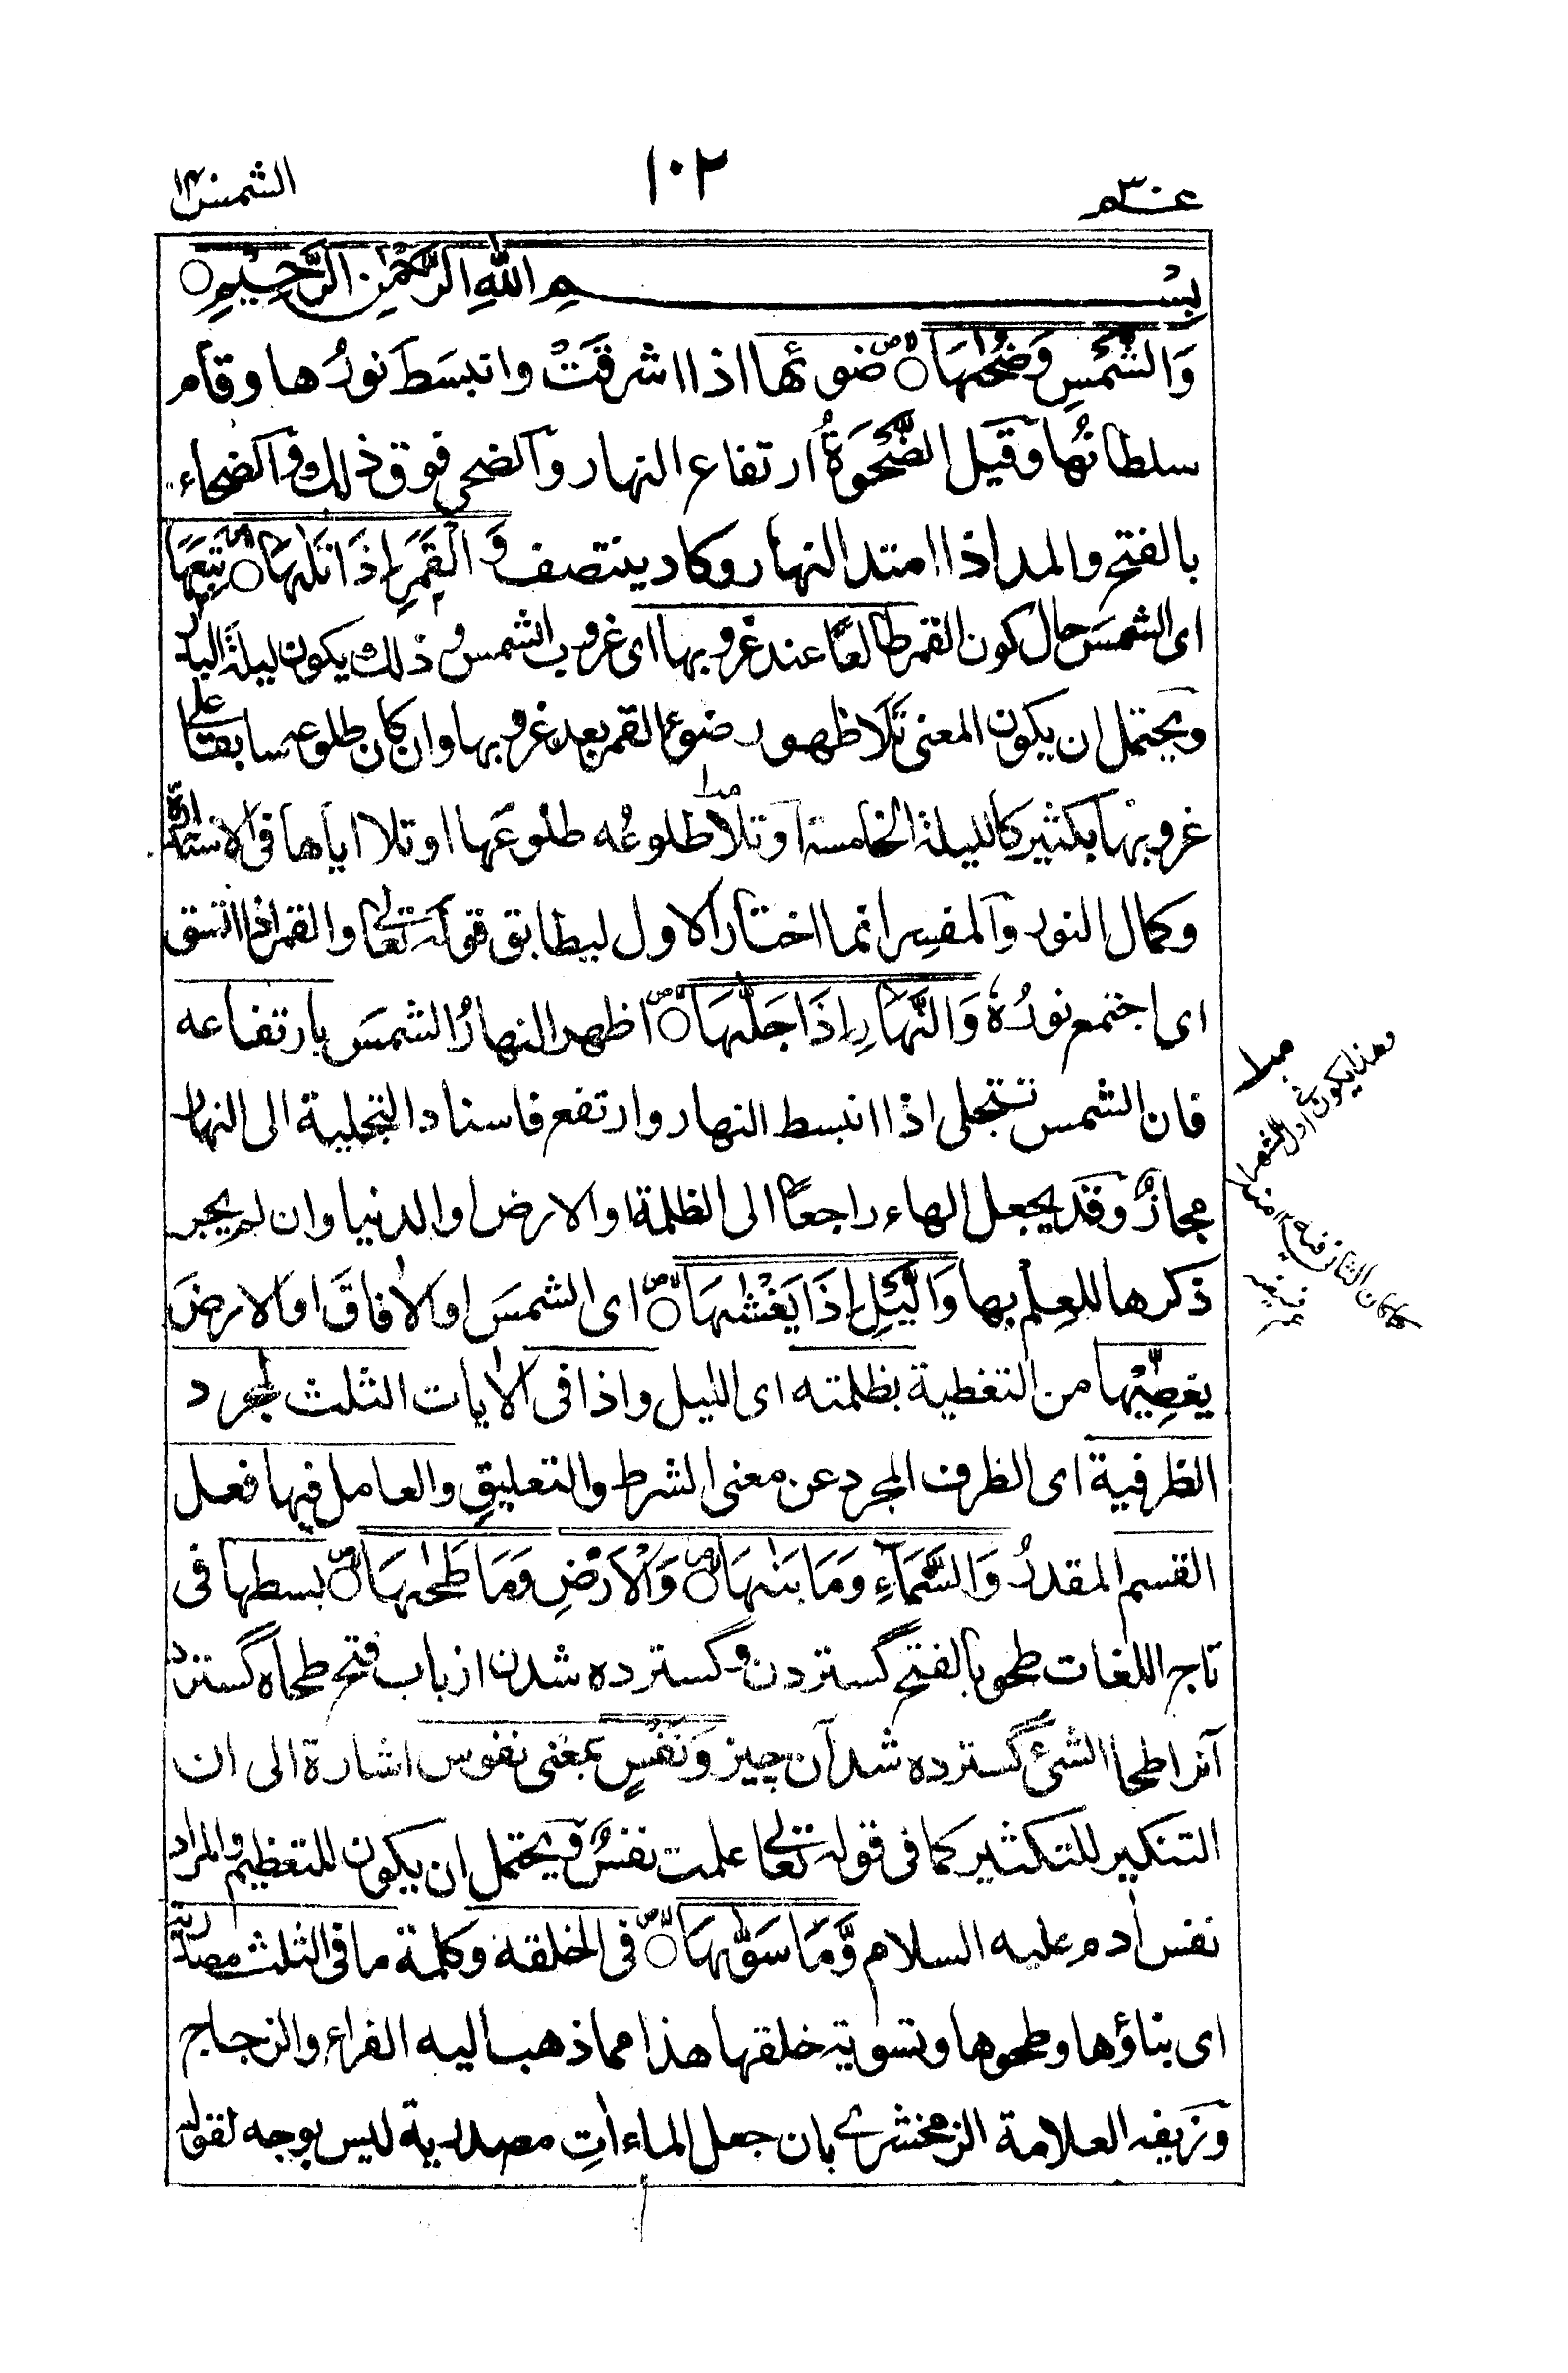 عم ٣٠
١٠٢
الشمس ٩١
بِسْمِ اللّٰهِ الرَّحْمٰنِ الرَّحِيْمِ ○
وَالشَّمْسِ وَضُحٰىهَا ○ ضوئها اذا اشرقَتْ وانبسَطَ نورُها وقام
سلطانُها وقيل الضَّحْوَةُ ارتفاع النهار والضحى فوق ذلك والضحاء
بالفتح والمد اذا امتد النهار وكاد ينتصف وَالْقَمَرِ اِذَا تَلٰهَا ○ تَبِعَهَا
اى الشمسَ حال كون القمر طالعًا عند غروبها اى غروب الشمس و ذلك يكون ليلة البدر
ويحتمل ان يكون المعنى تَلَا ظهور ضوء القمر بعد غروبها وان كان طلوعه سابقا على
غروبها بكثير كالليلة الخامسة او تلا طلوعُه طلوعَها او تلا اياها فى الاستدارة
وكمال النور والمفسر انما اختار الاول ليطابق قوله تعالى والقمر اذا اتسق
اى اجتمع نورُهٗ وَالنَّهَارِ اِذَا جَلّٰهَا ○ اظهر النهارُ الشمسَ بارتفاعه
فان الشمس تتجلى اذا انبسط النهار وارتفع فاسناد التجلية الى النهار
مجازٌ وقد يجعل الهاء راجعًا الى الظلمة او الارض او الدنيا وان لم يجر
ذكرها للعلم بها وَالَّيْلِ اِذَا يَغْشٰهَا ○ اى الشمسَ او الاٰفاقَ او الارضَ
يغطِّيْها من التغطية بظلمته اى الليل واذا فى الاٰيات الثلث لمجرد
الظرفية اى الظرف المجرد عن معنى الشرط والتعليق والعامل فيها فعل
القسم المقدرُ وَالسَّمَآءِ وَمَا بَنٰهَا ○ وَالْاَرْضِ وَمَا طَحٰهَا ○ بسطها فى
تاج اللغات طحو بالفتح گستردن و گسترده شدن از باب فتح طحاه گسترد
آنرا طحا الشئ گسترده شد آن چيز وَنَفْسٍ بمعنى نفوس اشارة الى ان
التنكير للتكثير كما فى قوله تعالى علمت نفسٌ ويحتمل ان يكون للتعظيم والمراد
نفس اٰدم عليه السلام وَّمَا سَوّٰىهَا ○ فى الخلقة وكلمة ما فى الثلث مصدرية
اى بناؤها وطحوها وتسوية خلقها هذا مما ذهب اليه الفراء والزجاج
وزيفه العلامة الزمخشرى بان جعل الماءاتِ مصدرية ليس بوجه لقوله
وهذا يكون اول الشهر